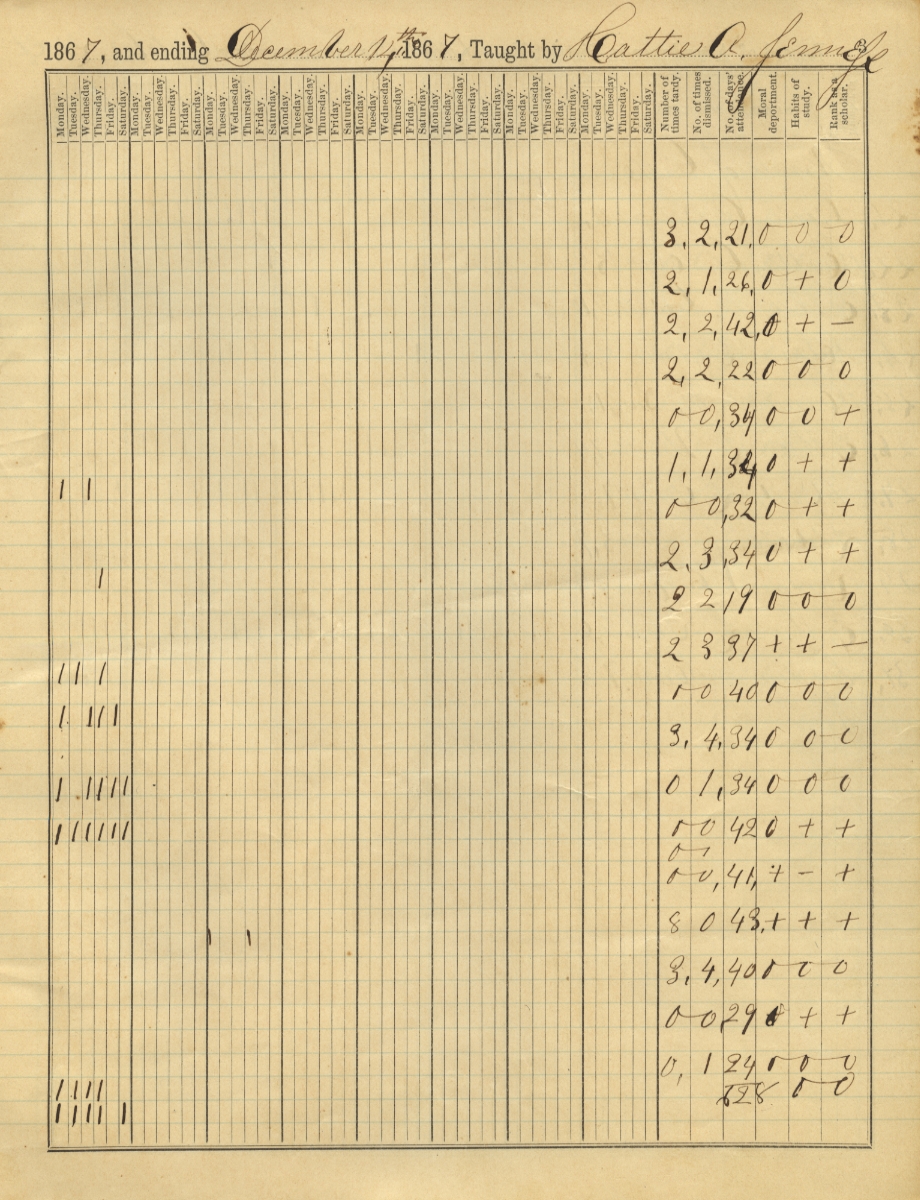 1867, and ending December 17th 1867, Taught by Hattie A.
Monday. Tuesday. Wednesday. Thursday. Friday. Saturday. Monday. Tuesday. Wednesday. Thursday. Friday. Saturday. Monday. Tuesday. Wednesday. Thursday. Friday. Saturday. Monday. Tuesday. Wednesday. Thursday. Friday. Saturday. Monday. Tuesday. Wednesday. Thursday. Friday. Saturday. Monday. Tuesday. Wednesday. Thursday. Friday. Saturday. Monday. Tuesday. Wednesday. Thursday. Friday. Saturday. Monday. Tuesday. Wednesday. Thursday. Friday. Saturday. Number of times tardy. No. of times dismissed. No. of days' attendance. Moral deportment. Habits of study. Rank as a scholar.
3, 2, 21, 0 0 0
2, 1, 26, 0 + 0
2, 2, 42, 0 + —
2, 2, 22 0 0 0
0 0, 34 0 0 +
1, 1, 34 0 + +
1 1
0 0, 32 0 + +
2, 3, 34 0 + +
1
2 2 19 0 0 0
2 3 37 + + —
1 1 1
0 0 40 0 0 0
1 1 1 1
3, 4, 34 0 0 0
0 1, 34 0 0 0
1 1 1 1 1
0 0 42 0 + +
1 1 1 1 1 1
0 0, 41, + - +
8 0 43, + + +
1 1
3, 4, 40 0 0 0
0 0, 29 + +
0, 1 24 0 0 0
1 1 1 1
628 0 0
1 1 1 1 1